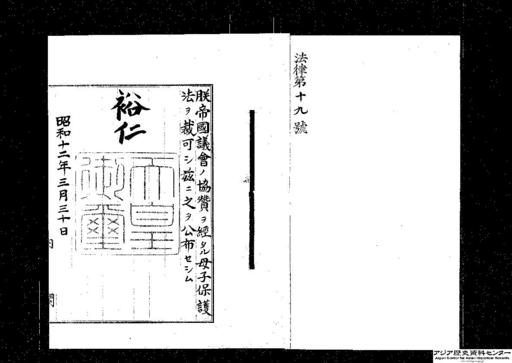 法律第十九號
朕帝國議會ノ協贊ヲ經タル母子保護
法ヲ裁可シ茲ニ之ヲ公布セシム
裕仁
天皇御璽
昭和十二年三月三十日
内閣
アジア歴史資料センター
Japan Center for Asian Historical Records